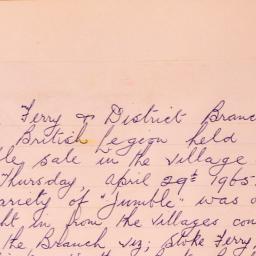 Ferry & District Branc
British Legion held
le sale in the village
Thursday, April 29th 1965.
ariety of "Jumble" was o
ht in from the villages con
the Branch viz; Stoke Ferry,